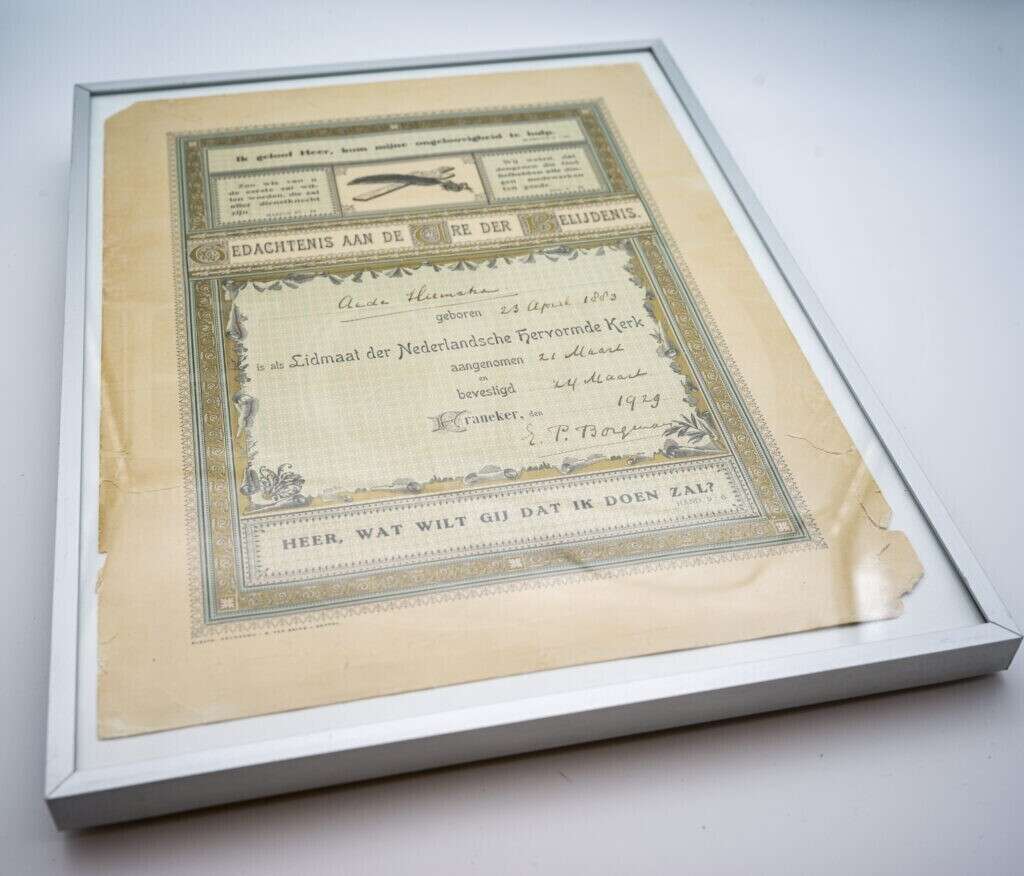 Ik geloof Heer, kom mijne ongeloovigheid te hulp.
Zoo wie van u
de eerste zal wil-
len worden, die zal
aller dienstknecht
zijn.
Wij weten, dat
dengenen die God
liefhebben alle din-
gen medewerken
ten goede.
GEDACHTENIS AAN DE URE DER BELIJDENIS.
geboren 23 April 1883
is als Lidmaat der Nederlandsche Hervormde Kerk
aangenomen 21 Maart
en
bevestigd 24 Maart
Franeker, den 1929
E. P. Borgman
HEER, WAT WILT GIJ DAT IK DOEN ZAL?